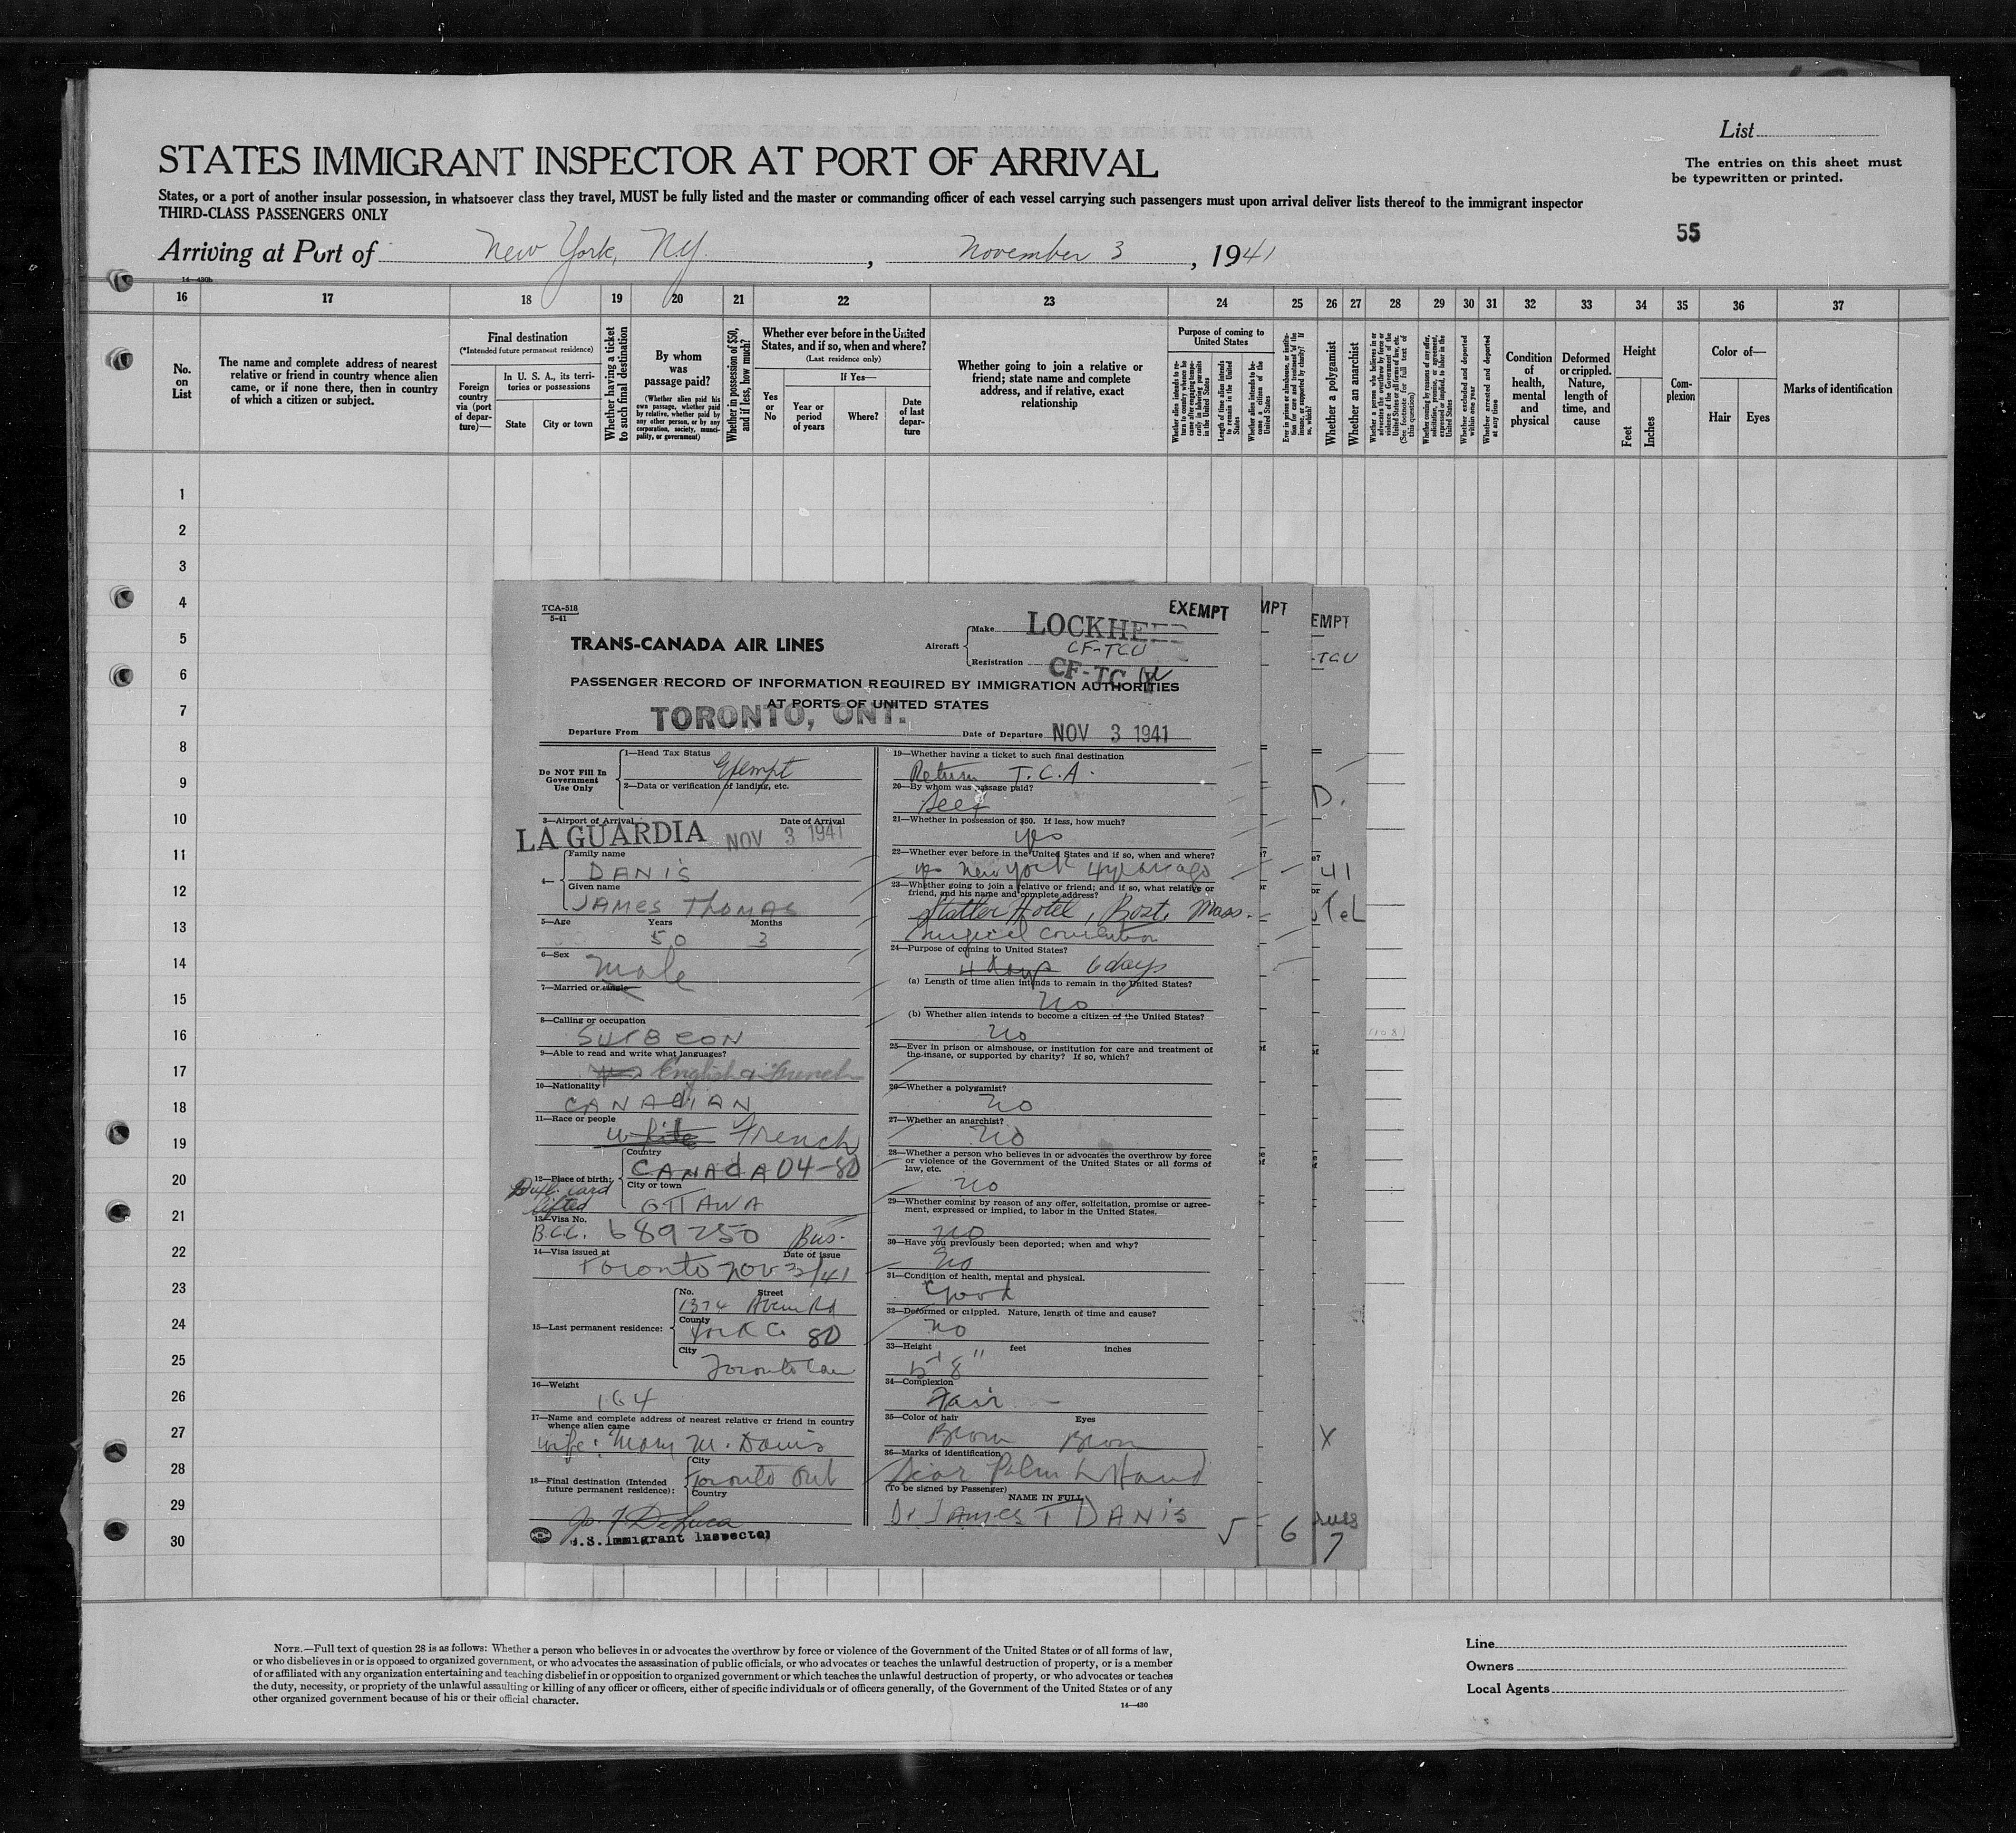 List
STATES IMMIGRANT INSPECTOR AT PORT OF ARRIVAL
The entries on this sheet must
be typewritten or printed.
States, or a port of another insular possession, in whatsoever class they travel, MUST be fully listed and the master or commanding officer of each vessel carrying such passengers must upon arrival deliver lists thereof to the immigrant inspector
THIRD-CLASS PASSENGERS ONLY
55
Arriving at Port of New York, N.Y. , November 3 , 1941
14—430b
16 17 18 19 20 21 22 23 24 25 26 27 28 29 30 31 32 33 34 35 36 37
No.
on
List
The name and complete address of nearest
relative or friend in country whence alien
came, or if none there, then in country
of which a citizen or subject.
Final destination
(*Intended future permanent residence)
Foreign
country
via (port
of depar-
ture)—
In U. S. A., its terri-
tories or possessions
State
City or town
Whether having a ticket
to such final destination
By whom
was
passage paid?
(Whether alien paid his
own passage, whether paid
by relative, whether paid by
any other person, or by any
corporation, society, munici-
pality, or government)
Whether in possession of $50,
and if less, how much?
Whether ever before in the United
States, and if so, when and where?
(Last residence only)
Yes
or
No
If Yes—
Year or
period
of years
Where?
Date
of last
depar-
ture
Whether going to join a relative or
friend; state name and complete
address, and if relative, exact
relationship
Purpose of coming to
United States
Length of time alien intends
to remain in the United
States
Whether alien intends to be-
come a citizen of the
United States
Whether a polygamist
Whether an anarchist
Whether excluded and deported
within one year
Whether arrested and deported
at any time
Condition
of
health,
mental
and
physical
Deformed
or crippled.
Nature,
length of
time, and
cause
Height
Feet
Inches
Com-
plexion
Color of—
Hair
Eyes
Marks of identification
1
2
3
4
5
6
7
8
9
10
11
12
13
14
15
16
17
18
19
20
21
22
23
24
25
26
27
28
29
30
TCA-518
5-41
EXEMPT
MPT
EMPT
TRANS-CANADA AIR LINES
Aircraft
Make LOCKHEED
CF-TCU
Registration CF-TC
-TCU
PASSENGER RECORD OF INFORMATION REQUIRED BY IMMIGRATION AUTHORITIES
AT PORTS OF UNITED STATES
Departure From TORONTO, ONT.
Date of Departure NOV 3 1941
Do NOT Fill In
Government
Use Only
1—Head Tax Status
Exempt
2—Data or verification of landing, etc.
3—Airport of Arrival Date of Arrival
LA GUARDIA NOV 3 1941
4—
Family name
DANIS
Given name
JAMES THOMAS
5—Age Years Months
50 3
6—Sex
Male
7—Married or single
8—Calling or occupation
SURGEON
9—Able to read and write what languages?
English & French
10—Nationality
CANADIAN
11—Race or people
white French
12—Place of birth:
Country
CANADA 04-80
City or town
OTTAWA
Dupl. card
lifted
13—Visa No.
B.C.C. 689250 Bus.
14—Visa issued at Date of issue
Toronto Nov 3/41
15—Last permanent residence:
No. Street
1374 Avenu Rd
County
York Co 80
City
Toronto Can
16—Weight
164
17—Name and complete address of nearest relative or friend in country
whence alien came
wife: Mary M. Danis
18—Final destination (Intended
future permanent residence):
City
Toronto Ont
Country
Jo. F. DeLuca
U.S. Immigrant Inspector
19—Whether having a ticket to such final destination
Return T.C.A.
20—By whom was passage paid?
Self
21—Whether in possession of $50. If less, how much?
yes
22—Whether ever before in the United States and if so, when and where?
yes New York 4 years ago
23—Whether going to join a relative or friend; and if so, what relative or
friend, and his name and complete address?
Statler Hotel, Bost. Mass.
Surgical convention
24—Purpose of coming to United States?
4 days 6 days
(a) Length of time alien intends to remain in the United States?
No
(b) Whether alien intends to become a citizen of the United States?
No
25—Ever in prison or almshouse, or institution for care and treatment of
the insane, or supported by charity? If so, which?
26—Whether a polygamist?
No
27—Whether an anarchist?
No
28—Whether a person who believes in or advocates the overthrow by force
or violence of the Government of the United States or all forms of
law, etc.
No
29—Whether coming by reason of any offer, solicitation, promise or agree-
ment, expressed or implied, to labor in the United States.
No
30—Have you previously been deported; when and why?
No
31—Condition of health, mental and physical.
Good
32—Deformed or crippled. Nature, length of time and cause?
No
33—Height feet inches
5' 8"
34—Complexion
Fair
35—Color of hair Eyes
Brown Brown
36—Marks of identification
Scar Palm L Hand
(To be signed by Passenger)
NAME IN FULL
Dr JAMES T DANIS
5
6
7
NOTE.—Full text of question 28 is as follows: Whether a person who believes in or advocates the overthrow by force or violence of the Government of the United States or of all forms of law,
or who disbelieves in or is opposed to organized government, or who advocates the assassination of public officials, or who advocates or teaches the unlawful destruction of property, or is a member
of or affiliated with any organization entertaining and teaching disbelief in or opposition to organized government or which teaches the unlawful destruction of property, or who advocates or teaches
the duty, necessity, or propriety of the unlawful assaulting or killing of any officer or officers, either of specific individuals or of officers generally, of the Government of the United States or of any
other organized government because of his or their official character.
14—430
Line
Owners
Local Agents